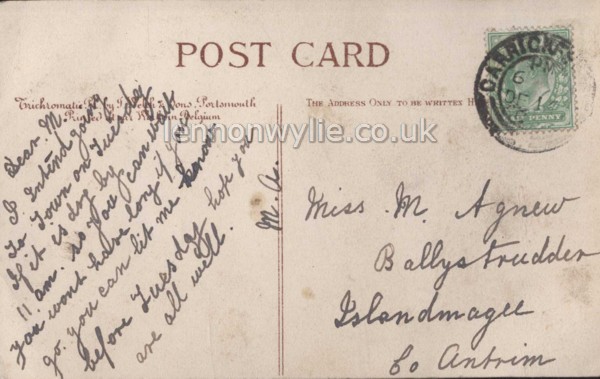 POST CARD
Trichromatic by & Sons, Portsmouth
Printed at Belgium
THE ADDRESS ONLY TO BE WRITTEN
lennonwylie.co.uk
CARRICKF
6 PM
DE 1
PENNY
Dear M.
I Intend going
To Town on Tuesday
If it is dry by
11 am. so you can wait
you wont have long if you
go. you can let me know
before Tuesday hope you
are all well.
M. A.
Miss M. Agnew
Ballystrudder
Islandmagee
Co Antrim